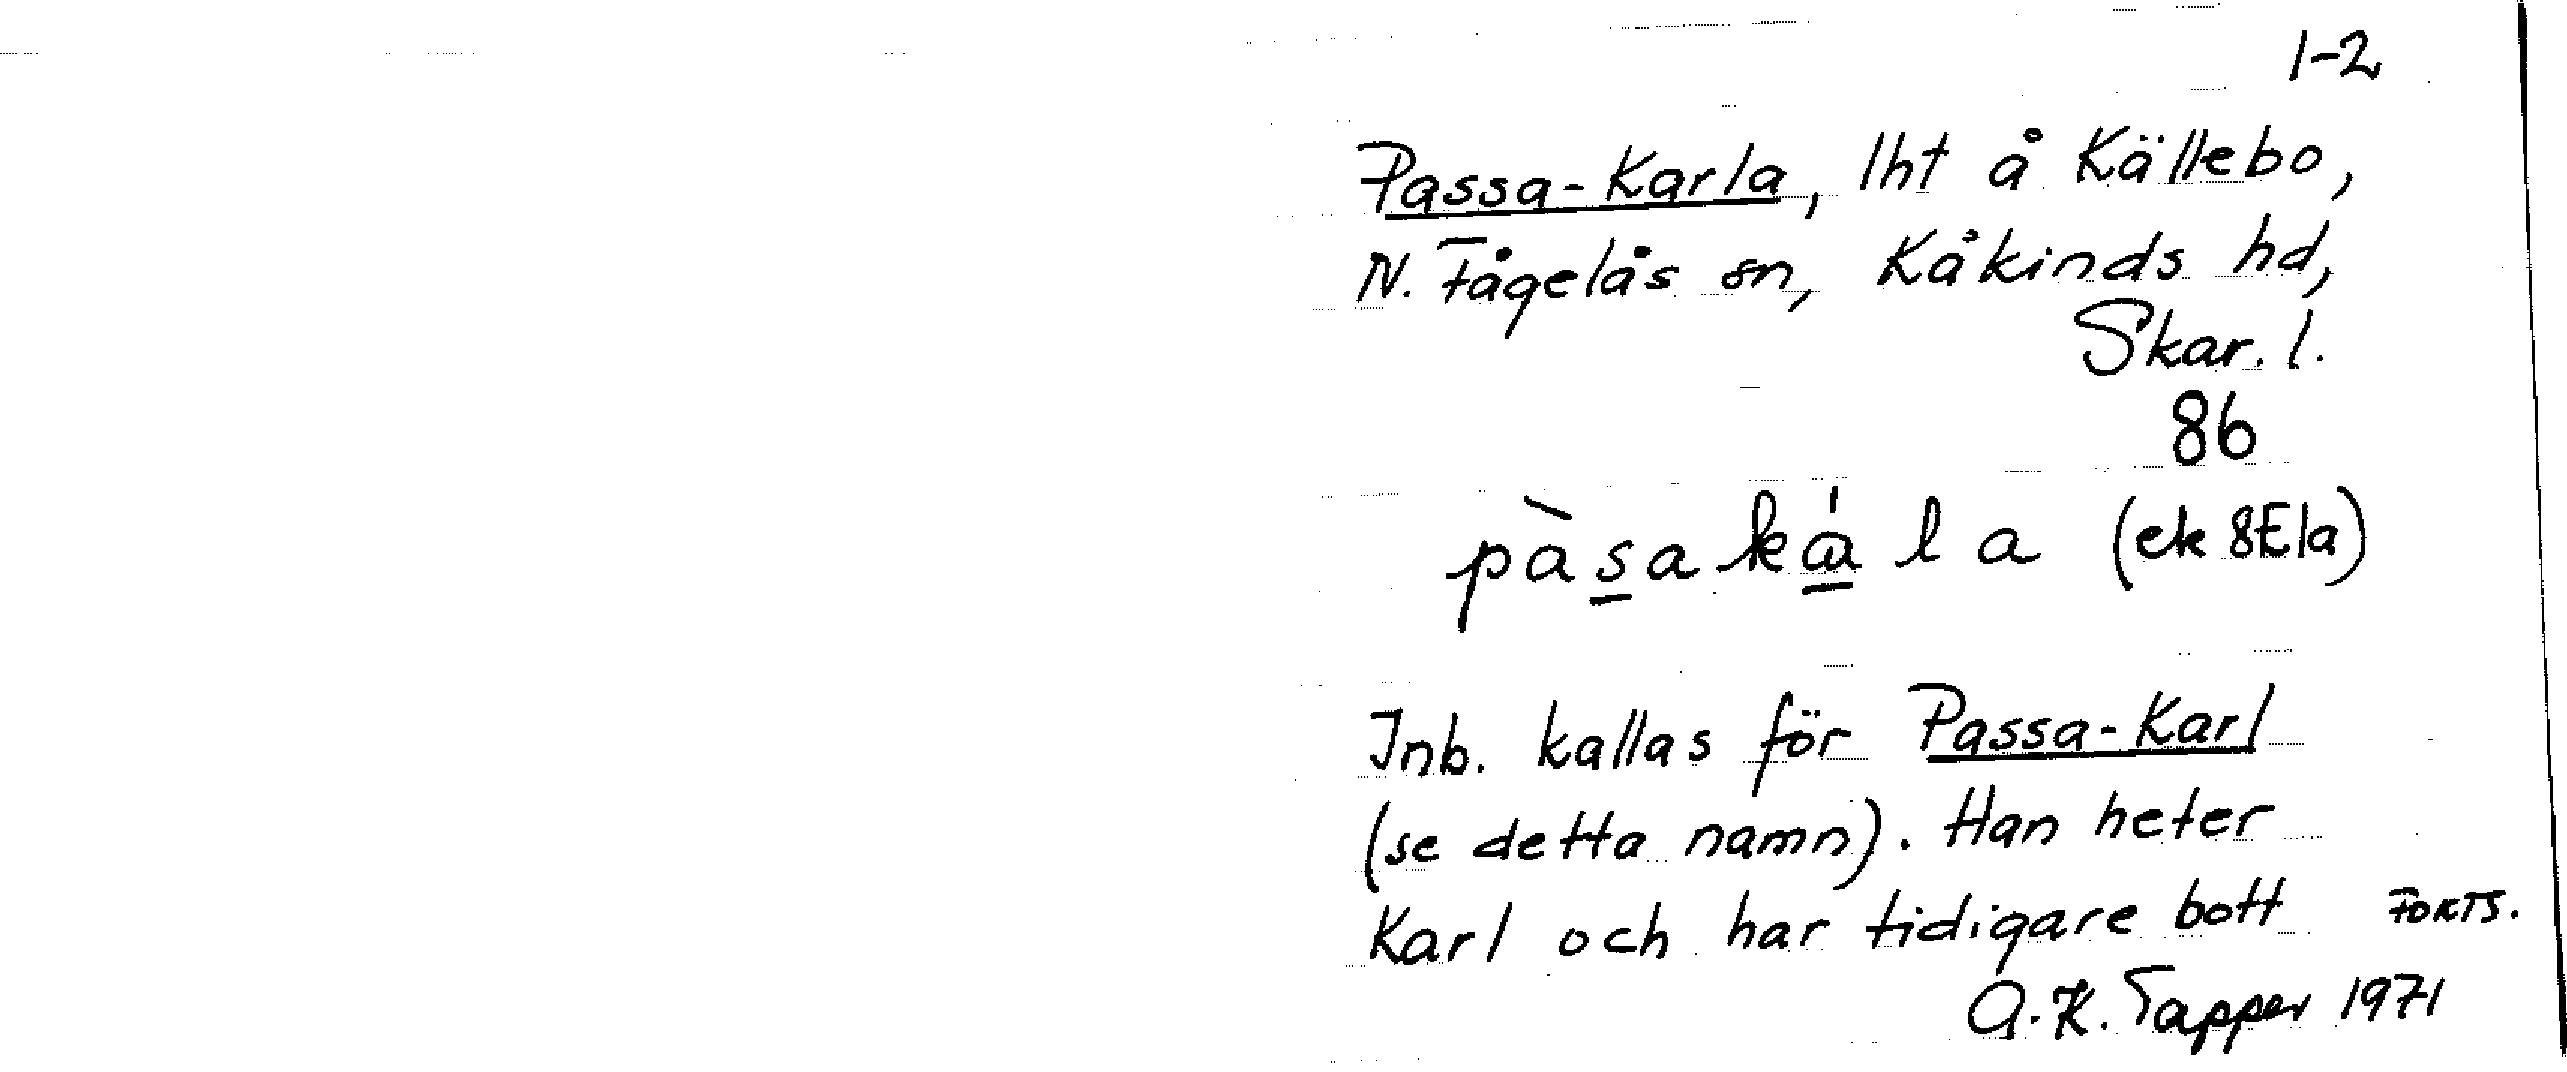 1-2
Passa-Karla, lht å Källebo,
N. Fågelås sn, Kåkinds hd,
Skar. l.
86
pàsakála (ek 8E1a)
Inb. kallas för Passa-Karl
(se detta namn). Han heter
Karl och har tidigare bott FORTS.
A.K. Tapper 1971